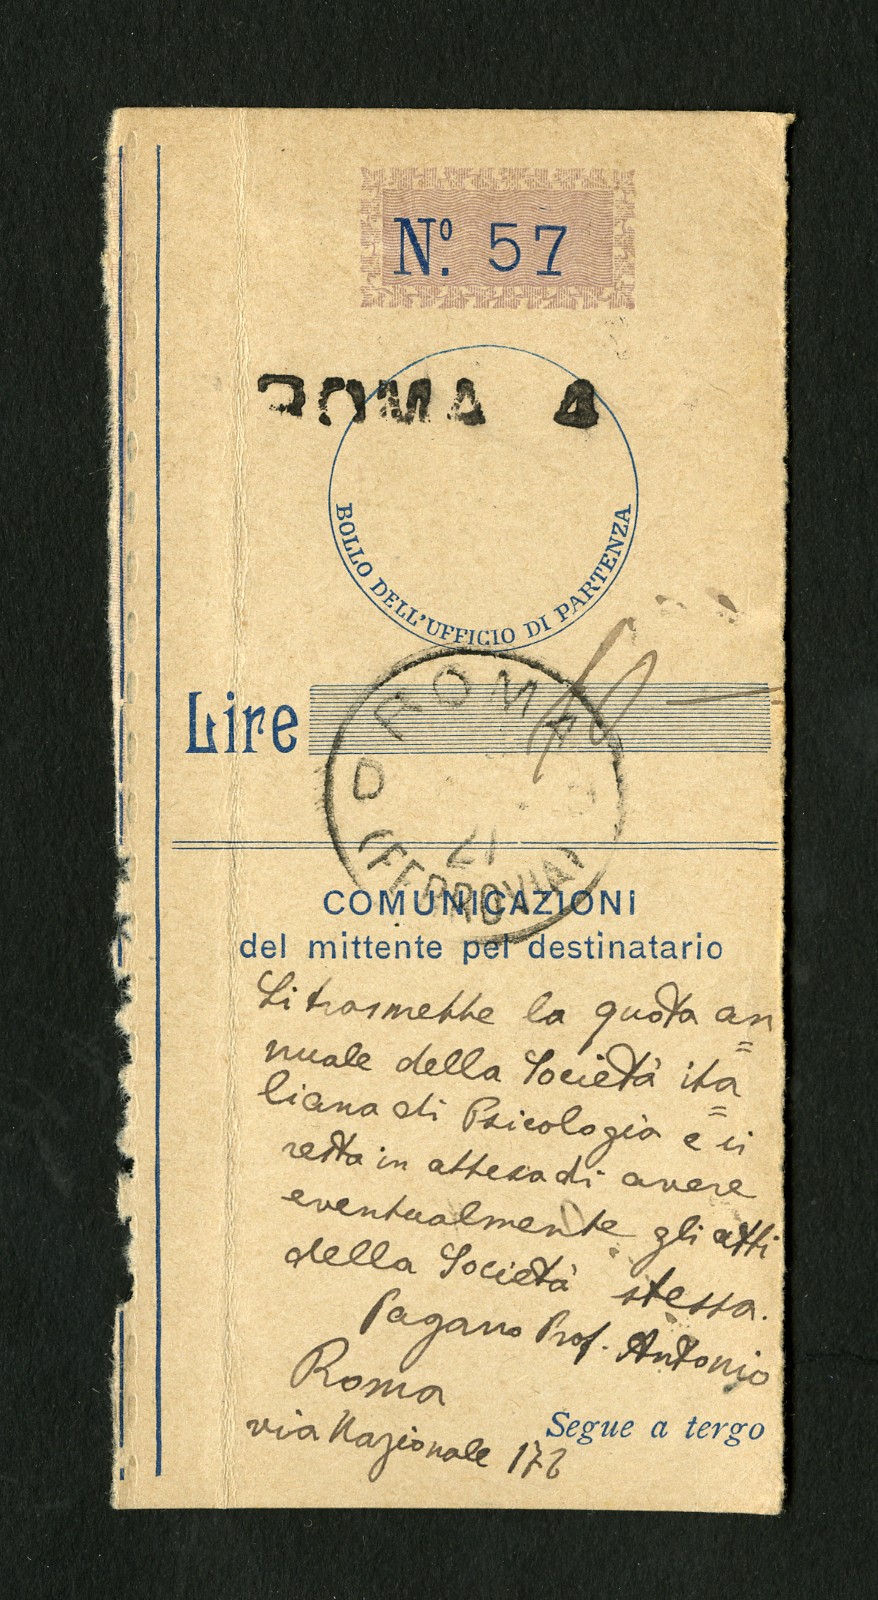 Nº. 57
ROMA A
BOLLO DELL'UFFICIO DI PARTENZA
Lire
ROMA
17
(FERROVIA)
COMUNICAZIONI
del mittente pel destinatario
Si trasmette la quota an=
nuale della Società ita=
liana di Psicologia e si
resta in attesa di avere
eventualmente gli atti
della Società stessa.
Pagano Prof. Antonio
Roma
via Nazionale
Segue a tergo